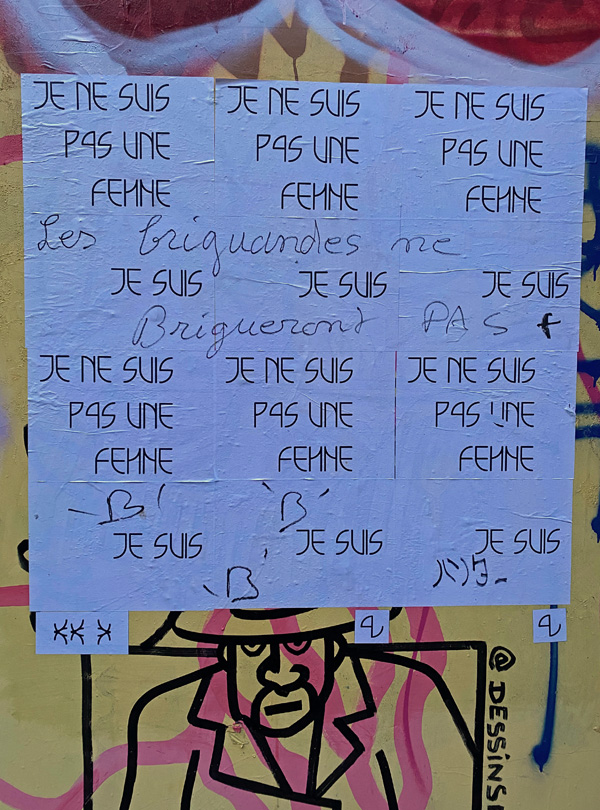 JE NE SUIS JE NE SUIS JE NE SUIS
PAS UNE PAS UNE PAS UNE
FEMME FEMME FEMME
Les briguandes ne
JE SUIS JE SUIS JE SUIS
Brigueront PAS
JE NE SUIS JE NE SUIS JE NE SUIS
PAS UNE PAS UNE PAS UNE
FEMME FEMME FEMME
B B
JE SUIS JE SUIS JE SUIS
B
@DESSINS